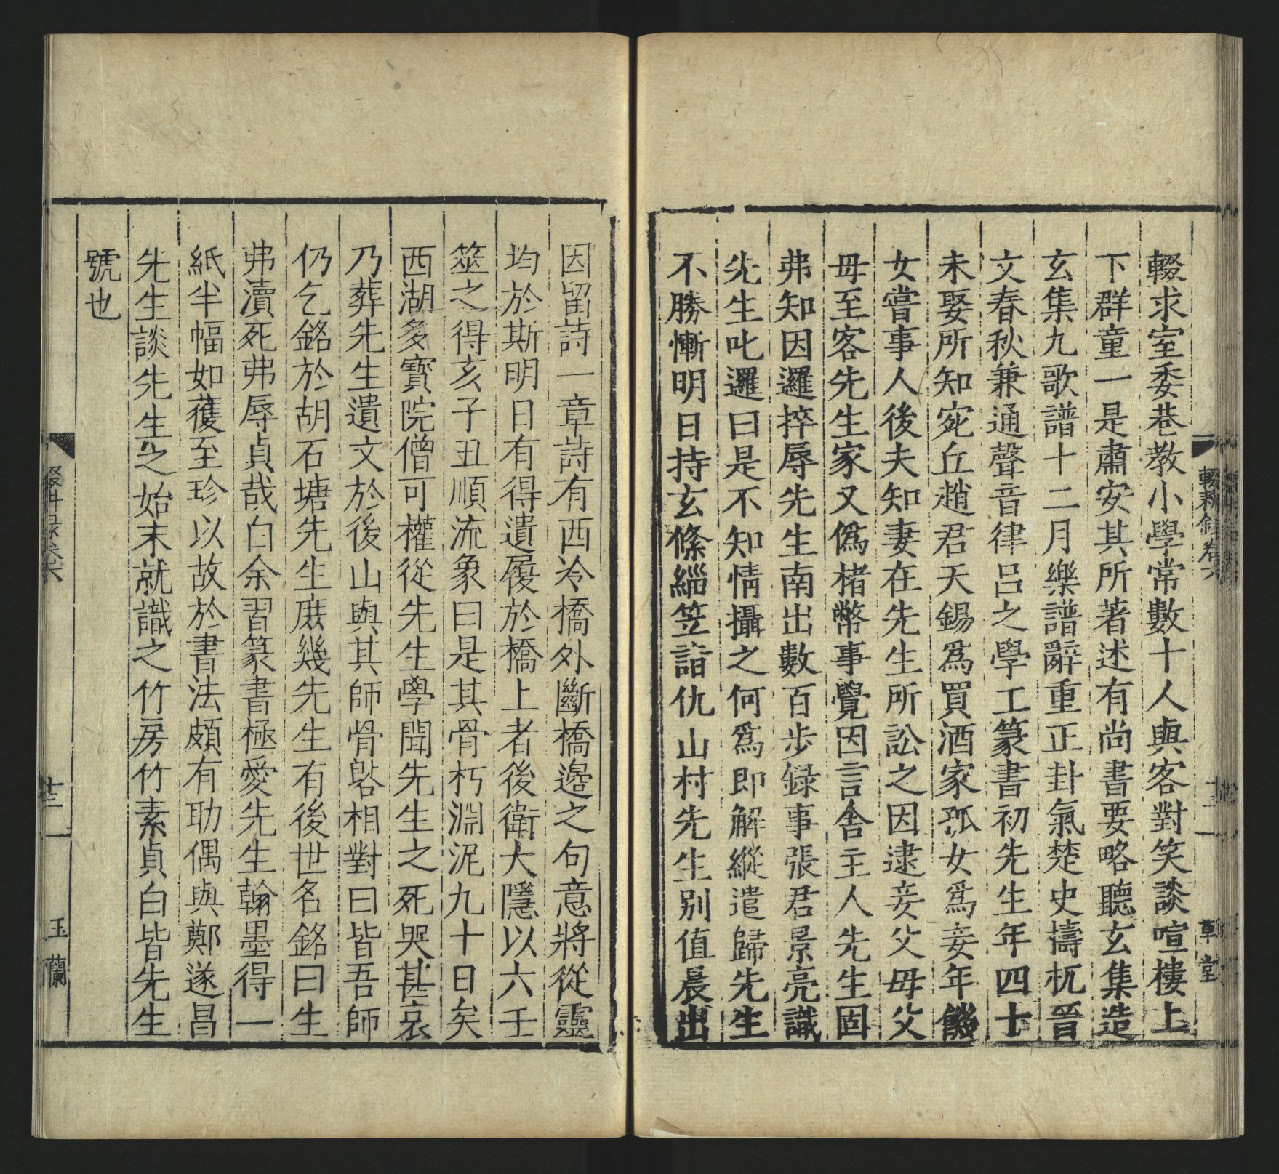 輟求室委巷教小學常數十人與客對笑談喧樓上
下群童一是肅安其所著述有尚書要略聽玄集造
玄集九歌譜十二月樂譜辭重正卦氣楚史檮杌晉
文春秋兼通聲音律呂之學工篆書初先生年四十
未娶所知宛丘趙君天錫爲買酒家孤女爲妾年饑
女嘗事人後夫知妻在先生所訟之因逮妾父母父
母至客先生家又僞楮幣事覺因言舍主人先生固
弗知因邏捽辱先生南出數百步録事張君景亮識
先生叱邏曰是不知情攝之何爲即解縱遣歸先生
不勝慚明日持玄絛緇笠詣仇山村先生別值晨出
輟耕錄卷六
十二
草堂
因留詩一章詩有西泠橋外斷橋邊之句意將從靈
均於斯明日有得遺履於橋上者後衛大隱以六壬
筮之得亥子丑順流象曰是其骨朽淵泥九十日矣
西湖多寳院僧可權從先生學聞先生之死哭甚哀
乃葬先生遺文於後山與其師骨㙮相對曰皆吾師
仍乞銘於胡石塘先生庶幾先生有後世名銘曰生
弗瀆死弗辱貞哉白余習篆書極愛先生翰墨得一
紙半幅如獲至珍以故於書法頗有助偶與鄭遂昌
先生談先生之始末就識之竹房竹素貞白皆先生
號也
卷六
十三
玉蘭